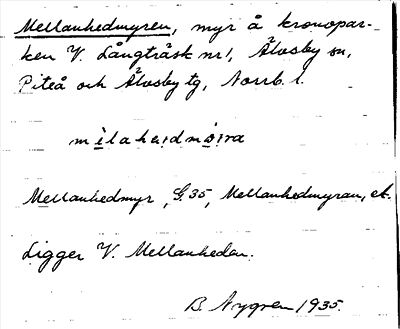 Mellanhedmyren, myr å kronopar-
ken V. Långträsk nr 1, Älvsby sn,
Piteå och Älvsby tg, Norrb. l.
Mellanhedmyr, G. 35, Mellanhedmyran, et.
Ligger V. Mellanheden.
B. Nygren 1935.